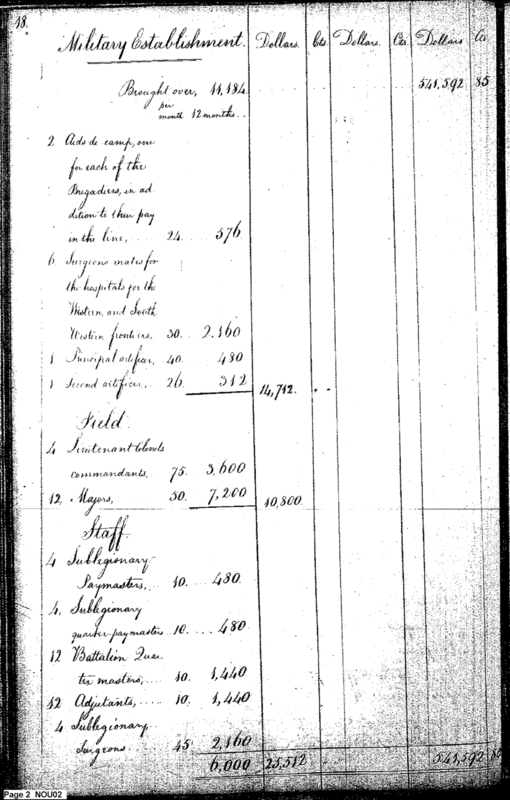 18.
Military Establishment. Dollars. Cts. Dollars. Cts. Dollars Cts
Brought over, 11,184. 541,592 85
per
month 12 months. ..
2 Aids de camp, one
for each of the
Brigadiers, in ad
dition to their pay
in the line, .... 24. ... 576
6. Surgeons mates for
the hospitals for the
Western, and South
Western frontiers, 30. .. 2,160
1 Principal artificer, 40. 480
1 Second artificer, .. 26. .. 312 14,712. ..
Field.
4 Lieutenant Colonels
commandants, 75. 3,600
12. Majors, 50. 7,200 10,800.
Staff.
4 Sublegionary
Paymasters, ... 10. ... 480.
4. Sublegionary
quarter-paymasters 10. .... 480
12 Battalion Quar
ter masters, .... 10. 1,440
12 Adjutants, ..... 10. 1,440
4 Sublegionary
Surgeons. 45 2,160
6,000 25,512 541,592 85
Page 2 NOU02